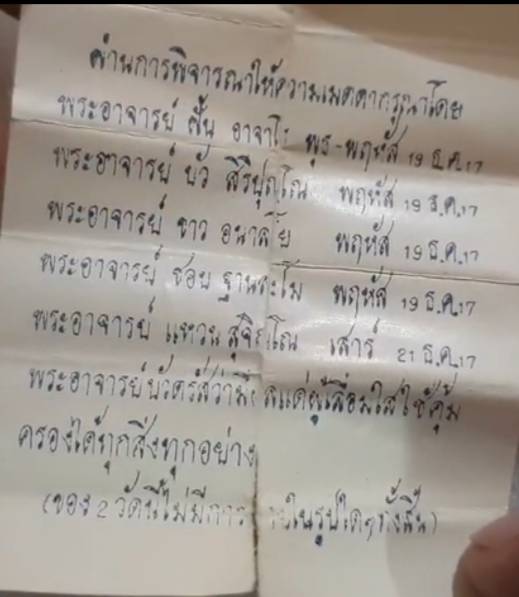 ผ่านการพิจารณาให้ความเมตตากรุณาโดย
พระอาจารย์ ฝั้น อาจาโร พุธ-พฤหัส 19 ธ.ค.17
พระอาจารย์ บัว สิริปุณฺโณ พฤหัส 19 ธ.ค.17
พระอาจารย์ ขาว อนาลโย พฤหัส 19 ธ.ค.17
พระอาจารย์ ชอบ ฐานะสโม พฤหัส 19 ธ.ค.17
พระอาจารย์ แหวน สุจิณฺโณ เสาร์ 21 ธ.ค.17
พระอาจารย์บัวตรัสว่ามี แด่ผู้เลื่อมใสใช้คุ้ม
ครองได้ทุกสิ่งทุกอย่าง
(ของ 2 วัดนี้ไม่มีการ ในรูปใดๆทั้งสิ้น)